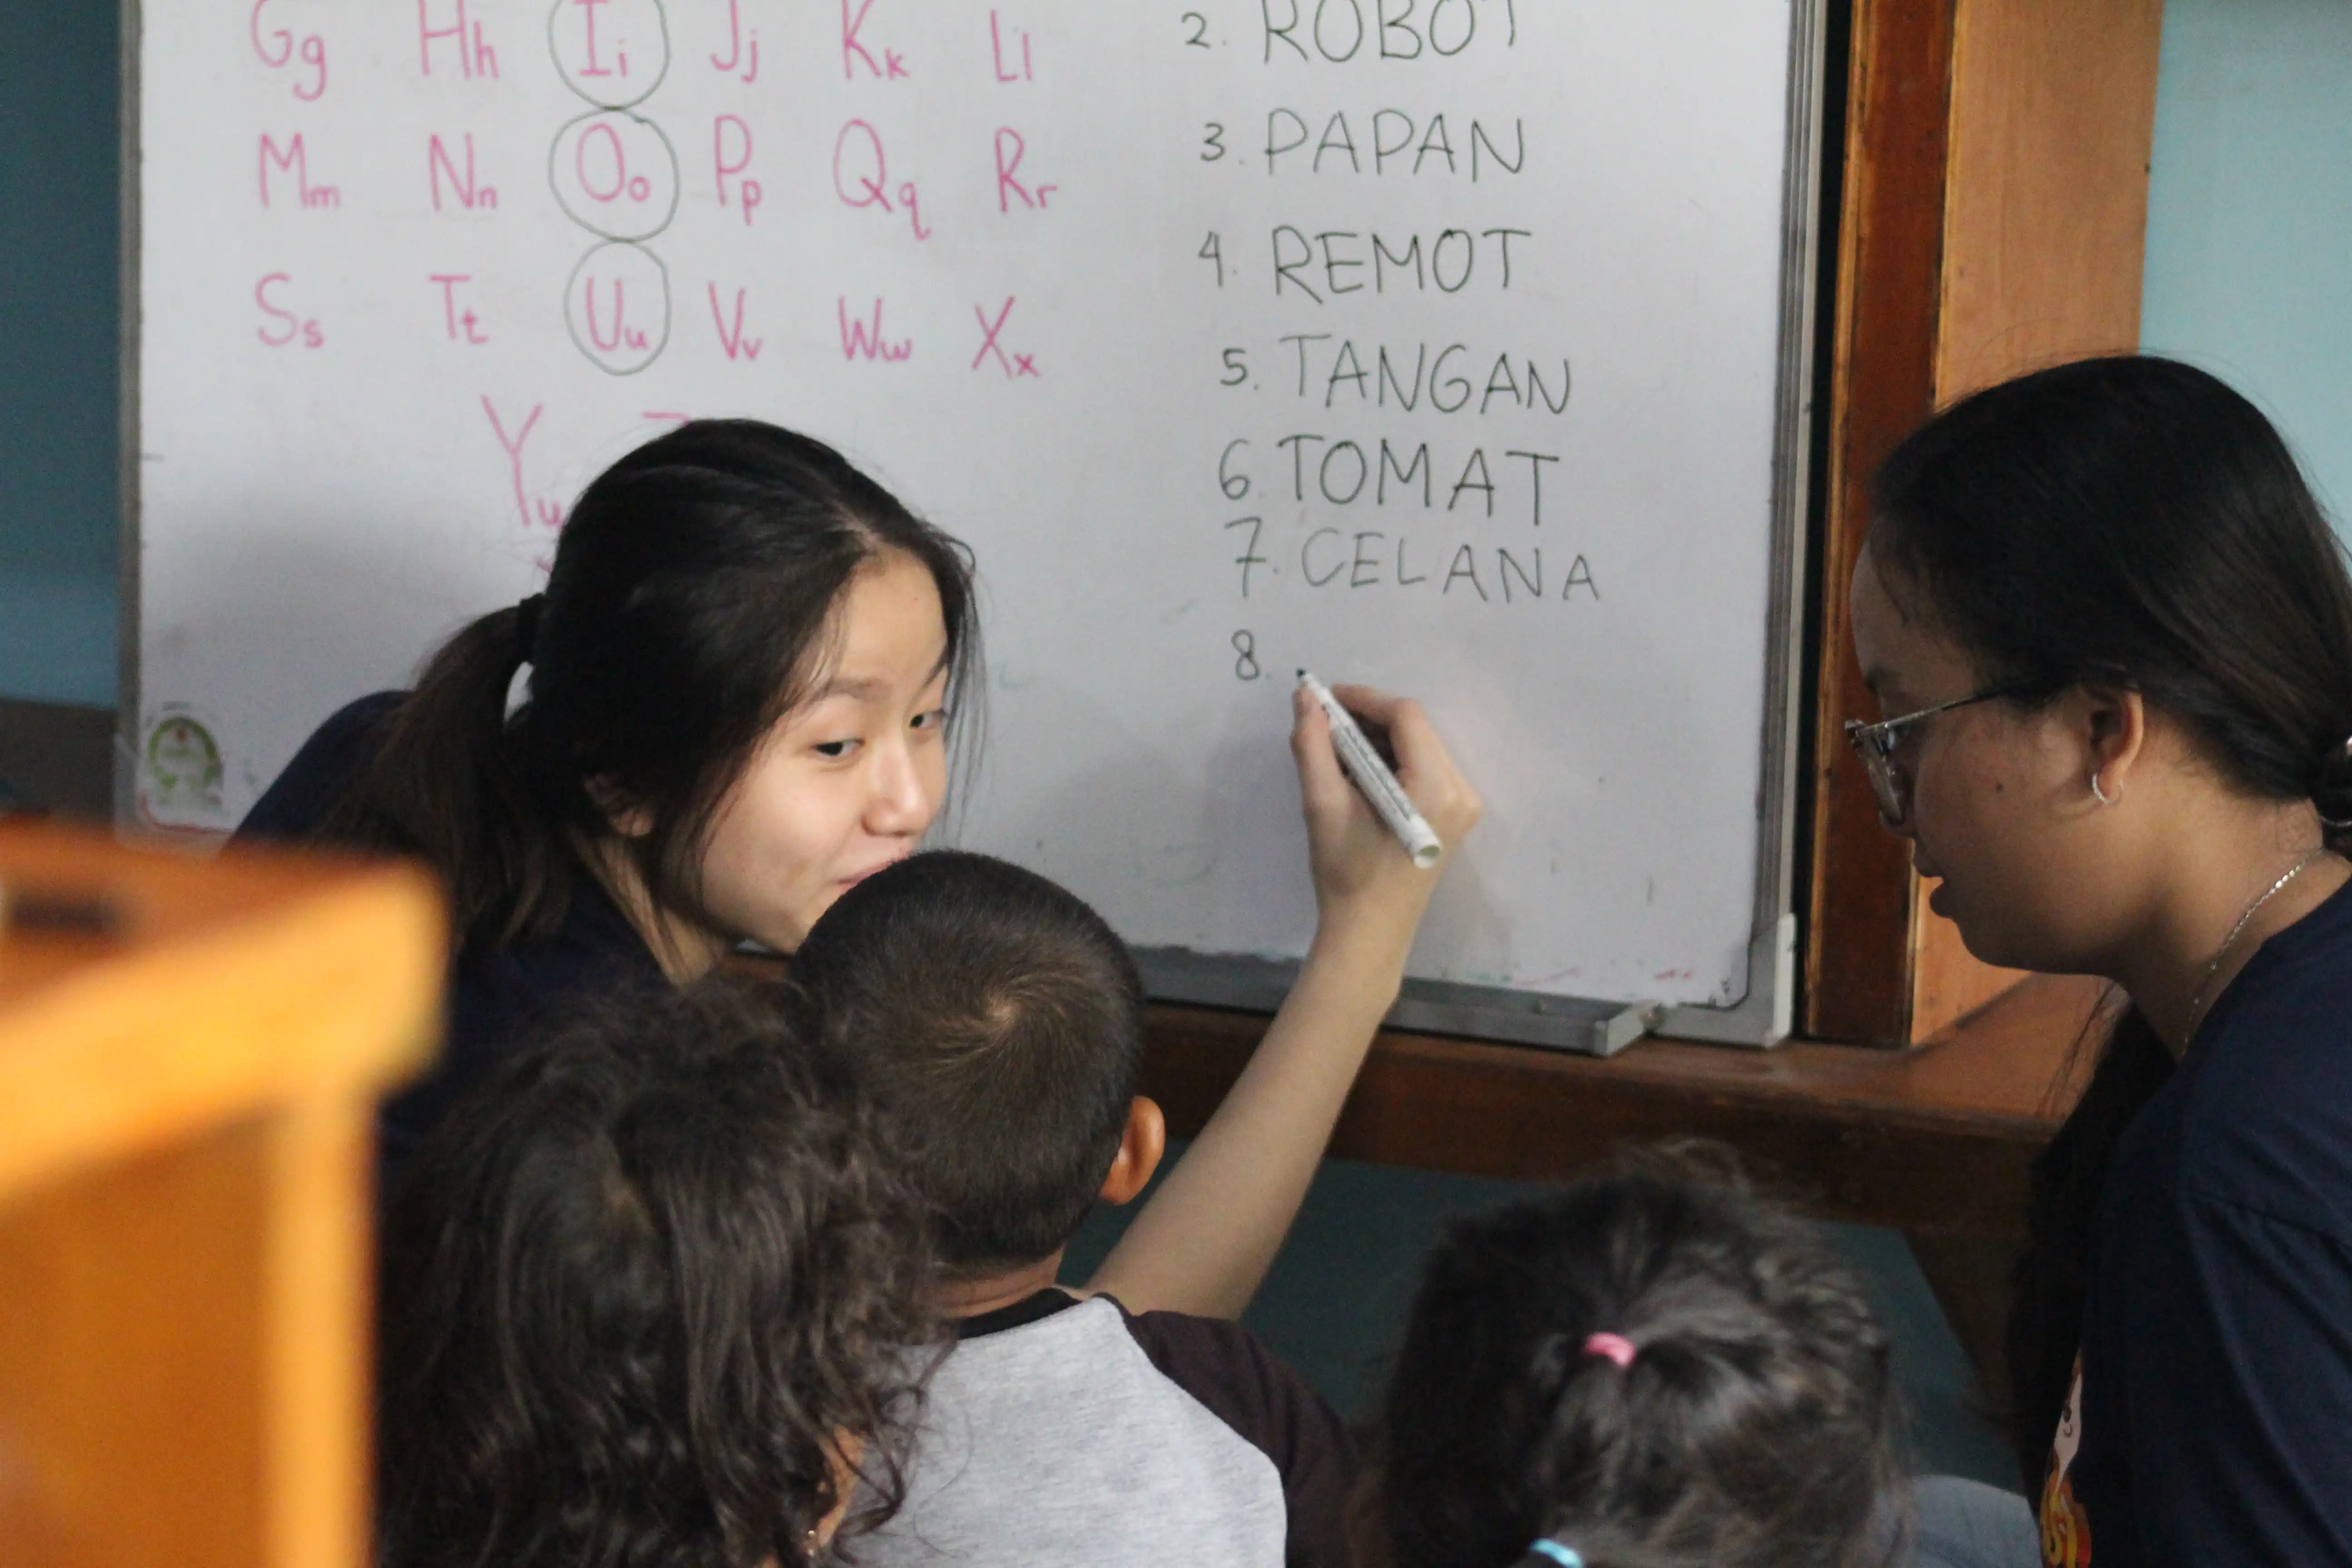 Gg Hh Ii Jj Kk Ll
Mm Nn Oo Pp Qq Rr
Ss Tt Uu Vv Ww Xx
Yy
2. ROBOT
3. PAPAN
4. REMOT
5. TANGAN
6. TOMAT
7. CELANA
8.